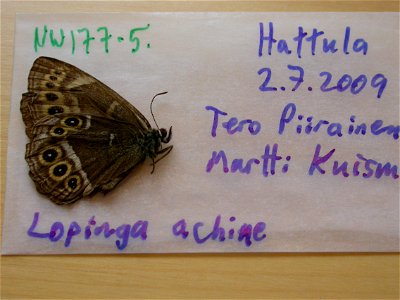 NW177-5.
Hattula
2.7.2009
Tero Piirainen
Martti Kuism
Lopinga achine